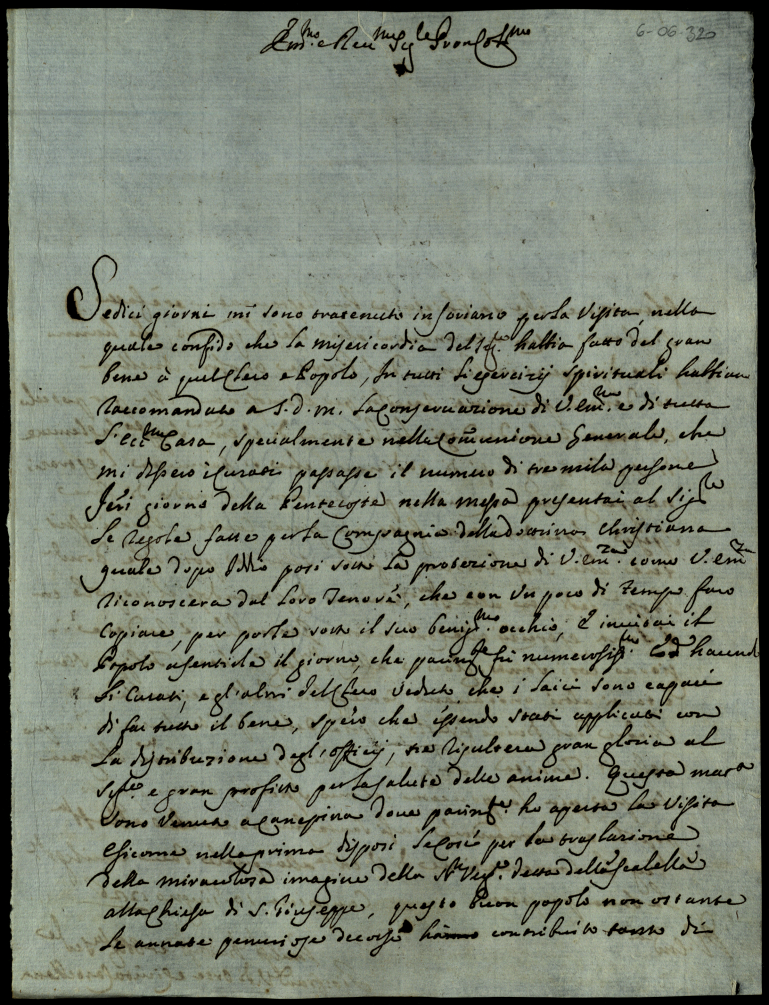 6-06-320
Em.mo e Rev.mo Sig.re Pron Col.mo
Sedici giorni mi sono trattenuto in Soriano per la Visita, nella
quale confido che la misericordia del Sig.re habbia fatto del gran
bene à quel Clero e Popolo, In tutti li esercizij spirituali habbiam
raccomandato a S. D. M. la Conservazione di V. Em.za e di tutta
S. Ecc.ma Casa, specialmente nella Comunione Generale, che
mi dissero i Curati passasse il numero di tre mila persone
Jeri giorno della Pentecoste nella messa presentai al Sig.re
le regole fatte per la Compagnia della dottrina Christiana
quale dopo Iddio posi sotto la protezione di V. Em.za come V. Em.za
riconoscerà dal loro Tenore, che con un poco di tempo farò
Copiare, per porle sotto il suo benig.mo occhio, e invitai il
Popolo a sentirle il giorno, che fù numerosiss.mo Ed havendo
li Curati, e gl'altri del Clero veduto che i laici sono capaci
di far tutto il bene, spero che essendo stati applicati con
la distribuzione degl'officij, ne risulterà gran gloria al
Sig.re e gran profitto per la salute delle anime. Questa matt.a
sono venuto a Canepina dove ho aperta la Visita
e siccome nella prima disposi le cose per la traslazione
della miracolosa imagine della S.ma Verg.e detta della Scalella
alla Chiesa di S. Giuseppe, questo buon popolo non ostante
le annate penuriose decorse contribuito tanto di